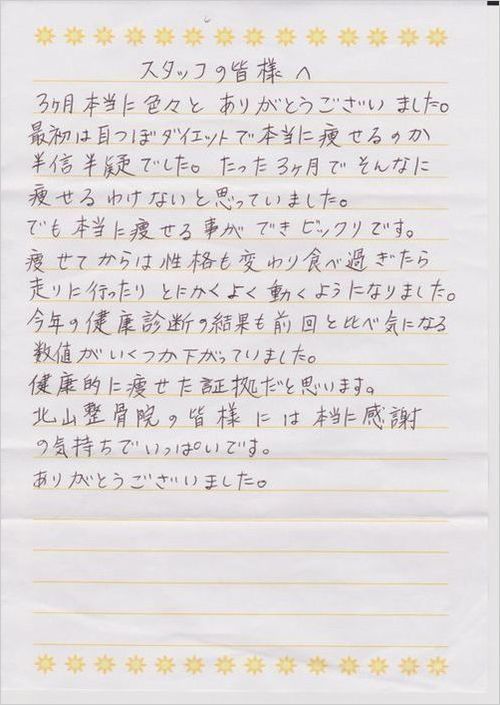 スタッフの皆様へ
3ヶ月本当に色々とありがとうございました。
最初は耳つぼダイエットで本当に痩せるのか
半信半疑でした。たった3ヶ月でそんなに
痩せるわけないと思っていました。
でも本当に痩せる事ができビックリです。
痩せてからは性格も変わり食べ過ぎたら
走りに行ったりとにかくよく動くようになりました。
今年の健康診断の結果も前回と比べ気になる
数値がいくつか下がっていました。
健康的に痩せた証拠だと思います。
北山整骨院の皆様には本当に感謝
の気持ちでいっぱいです。
ありがとうございました。